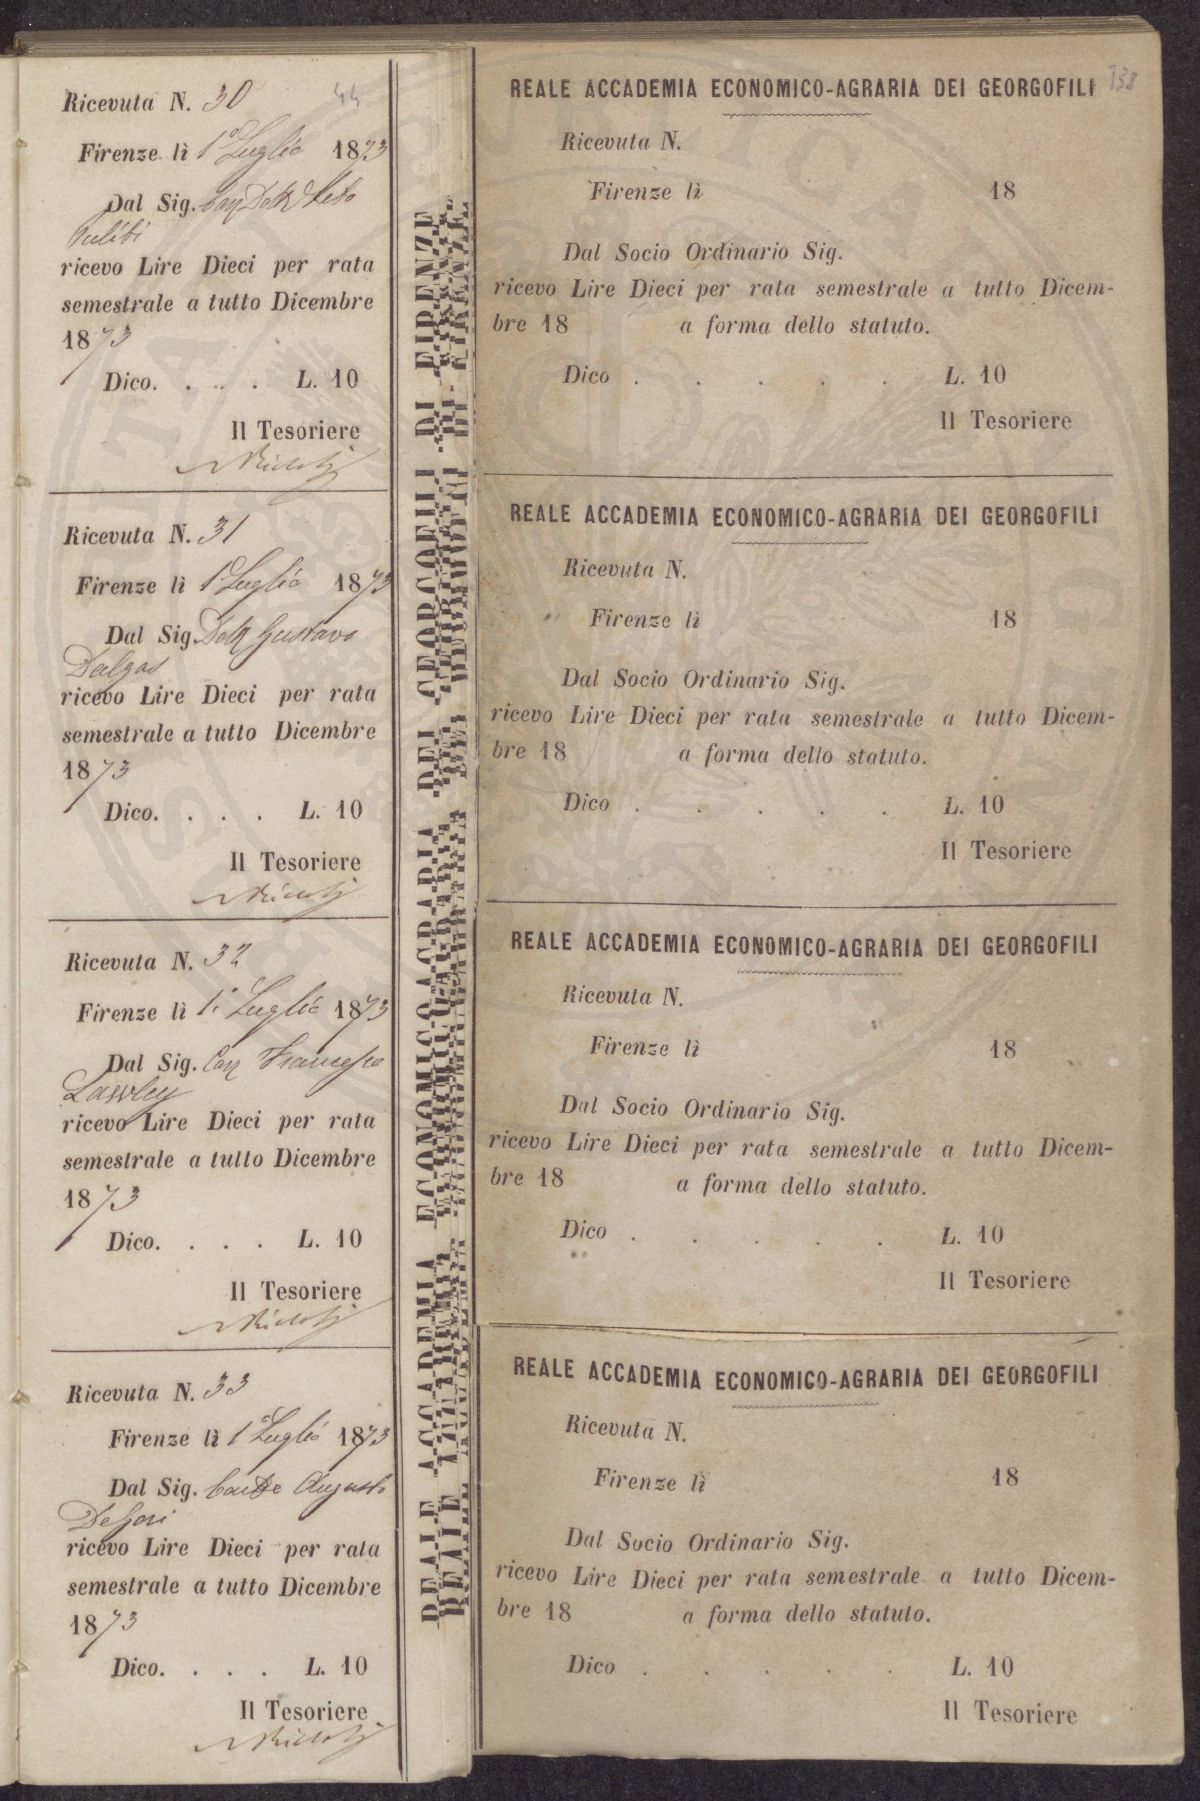 Ricevuta N. 30
44
Firenze lì 1° Luglio 1873
Dal Sig. Cav Dott
ricevo Lire Dieci per rata
semestrale a tutto Dicembre
1873
Dico. . . . L. 10
Il Tesoriere
Ricevuta N. 31
Firenze lì 1° Luglio 1873
Dal Sig. Dott Gustavo
Dalgas
ricevo Lire Dieci per rata
semestrale a tutto Dicembre
1873
Dico. . . . L. 10
Il Tesoriere
Ricevuta N. 32
Firenze lì 1° Luglio 1873
Dal Sig. Cav Francesco
Lawley
ricevo Lire Dieci per rata
semestrale a tutto Dicembre
1873
Dico. . . . L. 10
Il Tesoriere
Ricevuta N. 33
Firenze lì 1° Luglio 1873
Dal Sig. Conte Augusto
De Gori
ricevo Lire Dieci per rata
semestrale a tutto Dicembre
1873
Dico. . . . L. 10
Il Tesoriere
REALE ACCADEMIA ECONOMICO-AGRARIA DEI GEORGOFILI DI FIRENZE
138
REALE ACCADEMIA ECONOMICO-AGRARIA DEI GEORGOFILI
Ricevuta N.
Firenze lì 18
Dal Socio Ordinario Sig.
ricevo Lire Dieci per rata semestrale a tutto Dicem-
bre 18 a forma dello statuto.
Dico . . . . . L. 10
Il Tesoriere
REALE ACCADEMIA ECONOMICO-AGRARIA DEI GEORGOFILI
Ricevuta N.
Firenze lì 18
Dal Socio Ordinario Sig.
ricevo Lire Dieci per rata semestrale a tutto Dicem-
bre 18 a forma dello statuto.
Dico . . . . . L. 10
Il Tesoriere
REALE ACCADEMIA ECONOMICO-AGRARIA DEI GEORGOFILI
Ricevuta N.
Firenze lì 18
Dal Socio Ordinario Sig.
ricevo Lire Dieci per rata semestrale a tutto Dicem-
bre 18 a forma dello statuto.
Dico . . . . . L. 10
Il Tesoriere
REALE ACCADEMIA ECONOMICO-AGRARIA DEI GEORGOFILI
Ricevuta N.
Firenze lì 18
Dal Socio Ordinario Sig.
ricevo Lire Dieci per rata semestrale a tutto Dicem-
bre 18 a forma dello statuto.
Dico . . . . . L. 10
Il Tesoriere